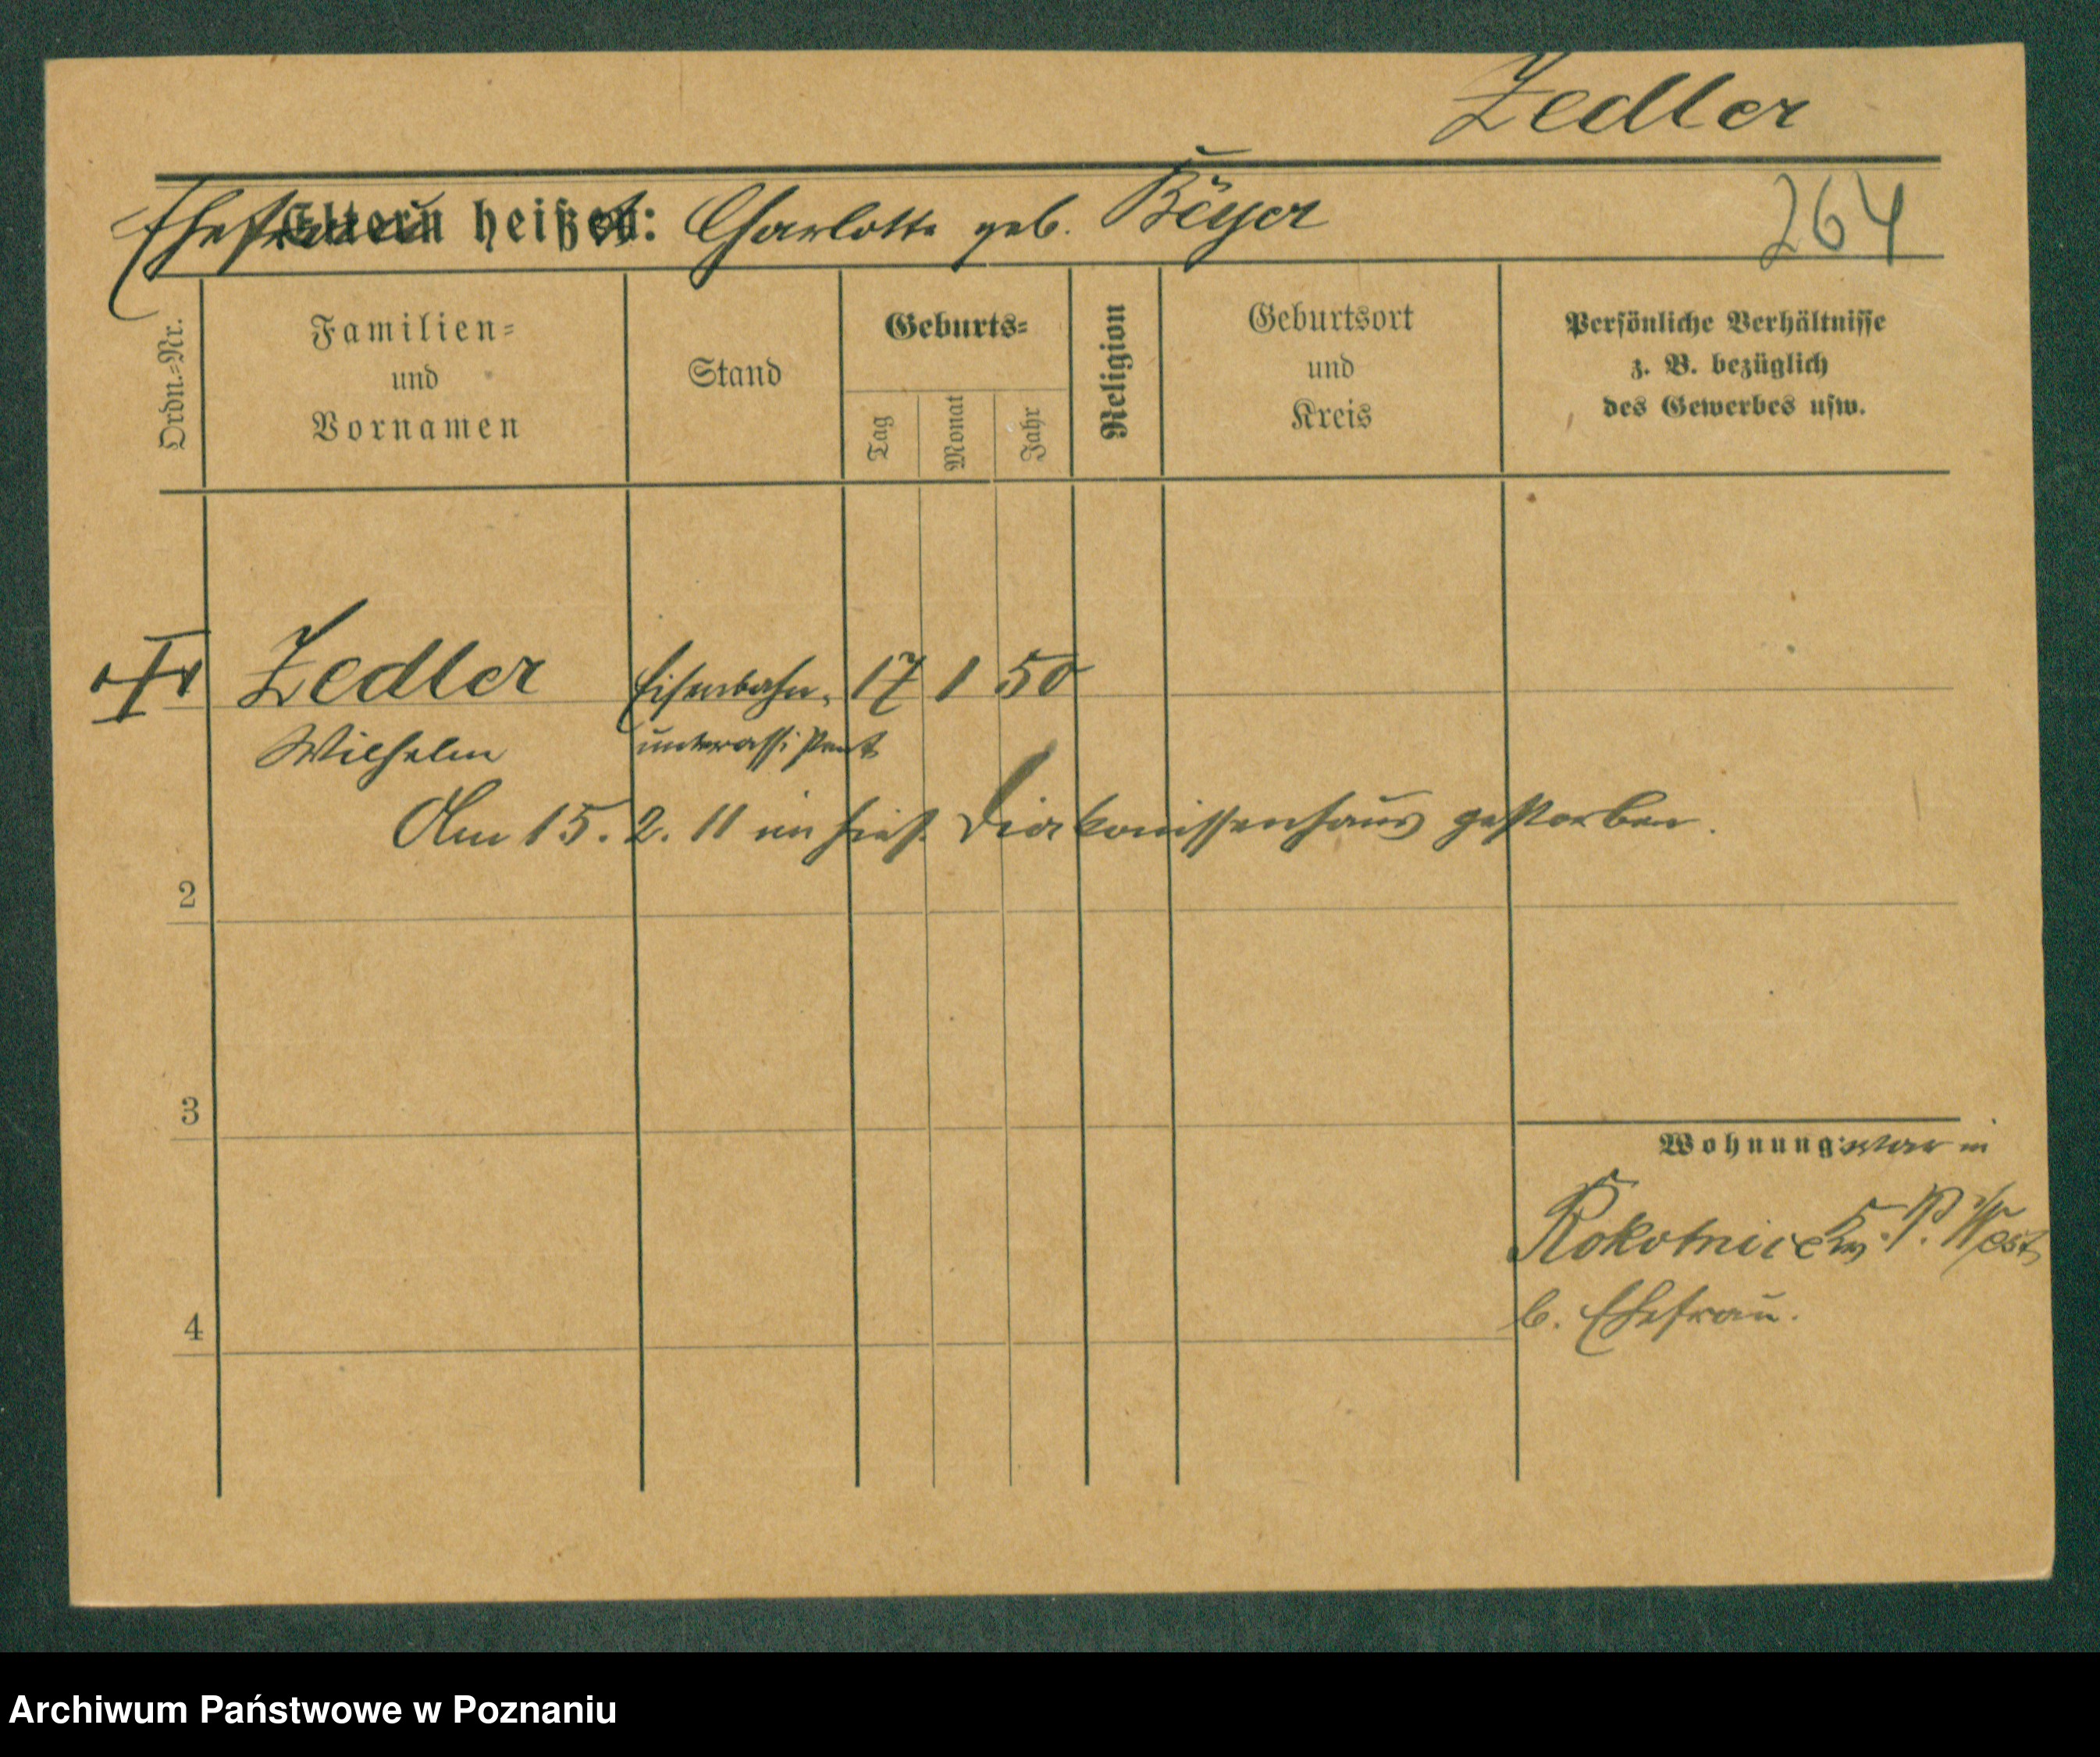 Zedler
Ehefrau heißt: Charlotte geb. Beyer
264
Ordn.=Nr.
Familien=
und
Vornamen
Stand
Geburts=
Tag
Monat
Jahr
Religion
Geburtsort
und
Kreis
Persönliche Verhältnisse
z. B. bezüglich
des Gewerbes usw.
Zedler Eisenbahn- 17 1 50
Wilhelm unterassistent
Am 15. 2. 11 im hies. Diakonissenhaus gestorben.
2
3
Wohnung: war in
Rokotnice P. West
b. Ehefrau.
4
Archiwum Państwowe w Poznaniu